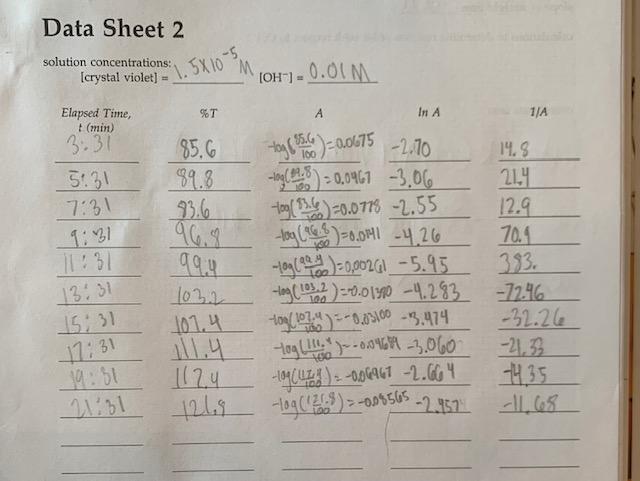 Data Sheet 2
solution concentrations:
[crystal violet] = 1.5X10⁻⁵ M [OH⁻] = 0.01M
Elapsed Time, t (min) %T A ln A 1/A
3:31 85.6 -log(85.6/100)=0.0675 -2.70 14.8
5:31 89.8 -log(89.8/100)=0.0467 -3.06 21.4
7:31 83.6 -log(83.6/100)=0.0778 -2.55 12.9
9:31 96.8 -log(96.8/100)=0.0141 -4.26 70.9
11:31 99.4 -log(99.4/100)=0.00261 -5.95 383.
13:31 103.2 -log(103.2/100)=-0.01380 -4.283 -72.46
15:31 107.4 -log(107.4/100)=-0.03100 -3.474 -32.26
17:31 111.4 -log(111.4/100)=-0.04689 -3.060 -21.33
19:31 117.4 -log(117.4/100)=-0.06967 -2.664 -14.35
21:31 121.8 -log(121.8/100)=-0.08565 -2.457 -11.68